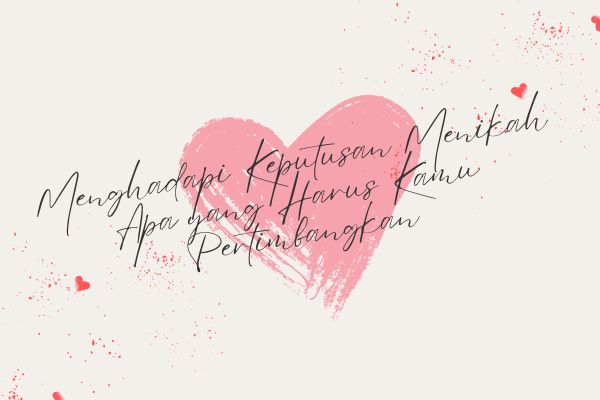 Menghadapi Keputusan Menikah
Apa yang Harus Kamu
Pertimbangkan